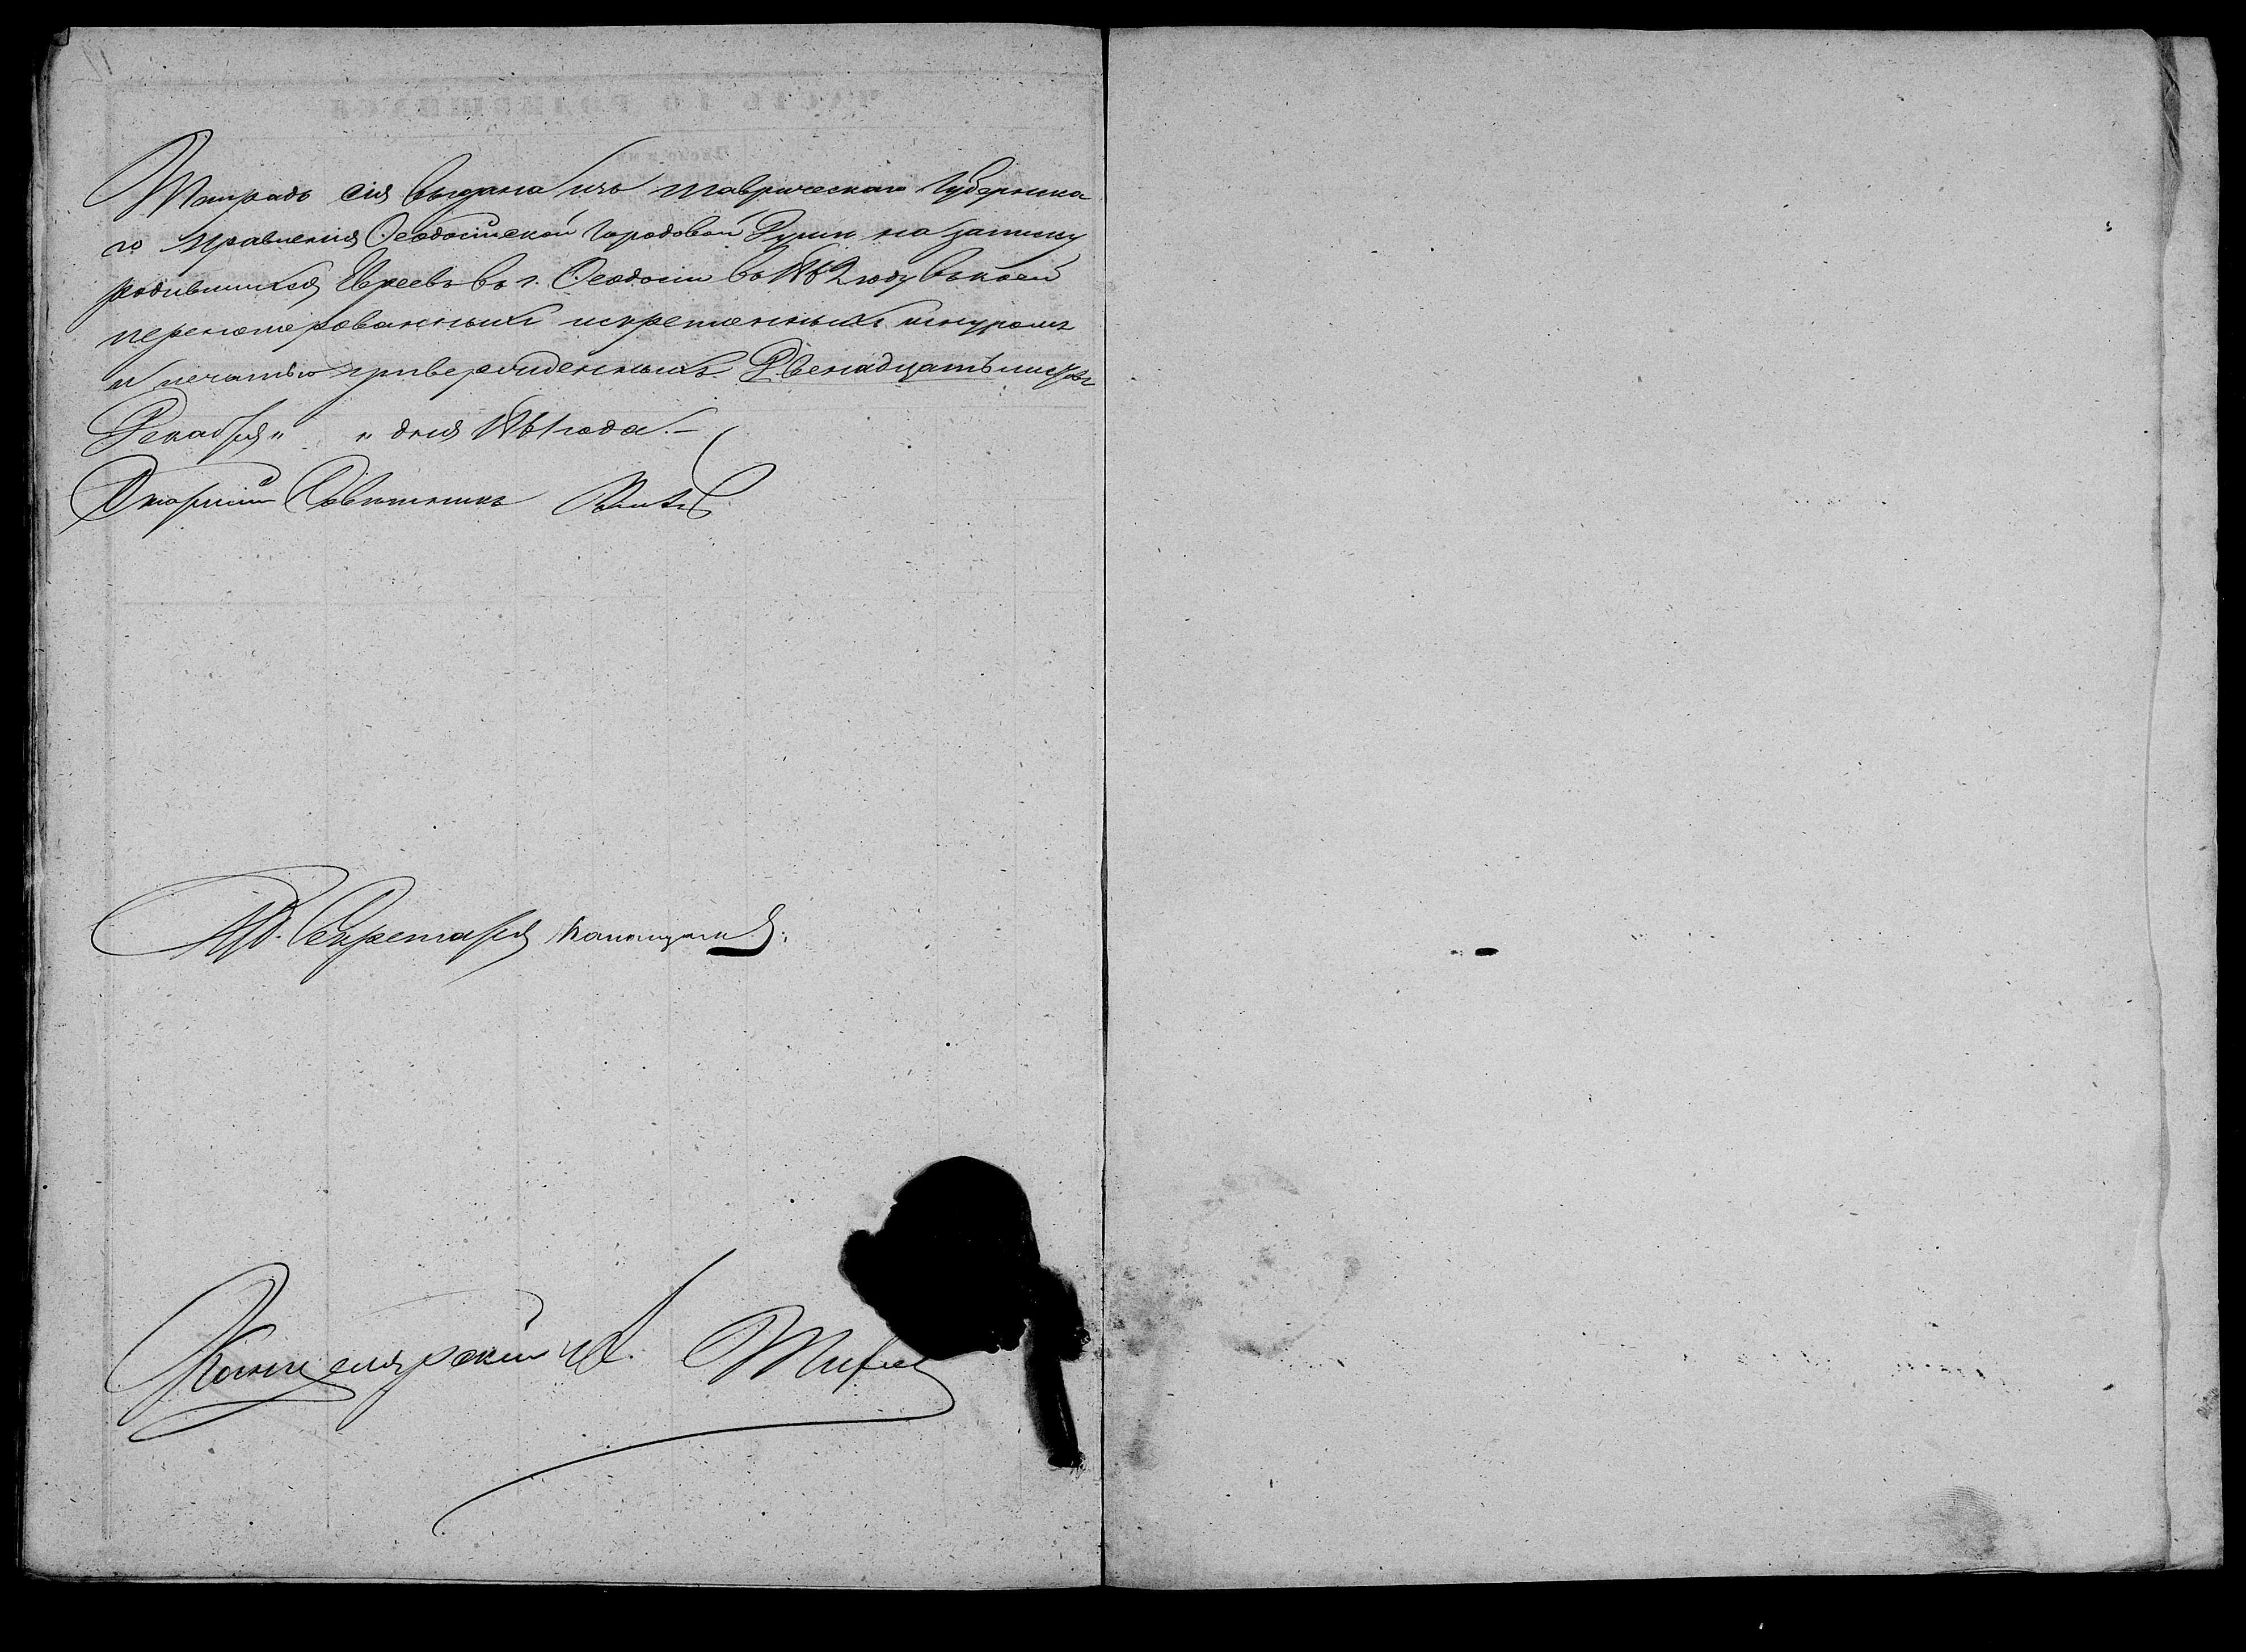 Тетрадь сія выдана изъ Таврическаго Губернска
го Правленія Ѳеодосійской Городовой Думѣ на записку
родившихся Евреевъ въ г. Ѳеодосіи въ 1862 году въ коей
перенумерованныхъ скрепленныхъ шнуромъ
и печатью утвержденныхъ Двенадцать листовъ
Декабря " " дня 1861 года. –
Старшій Совѣтникъ
Секретаря
Канцелярскій
ЧАСТЬ I О РОДИВШИХСЯ